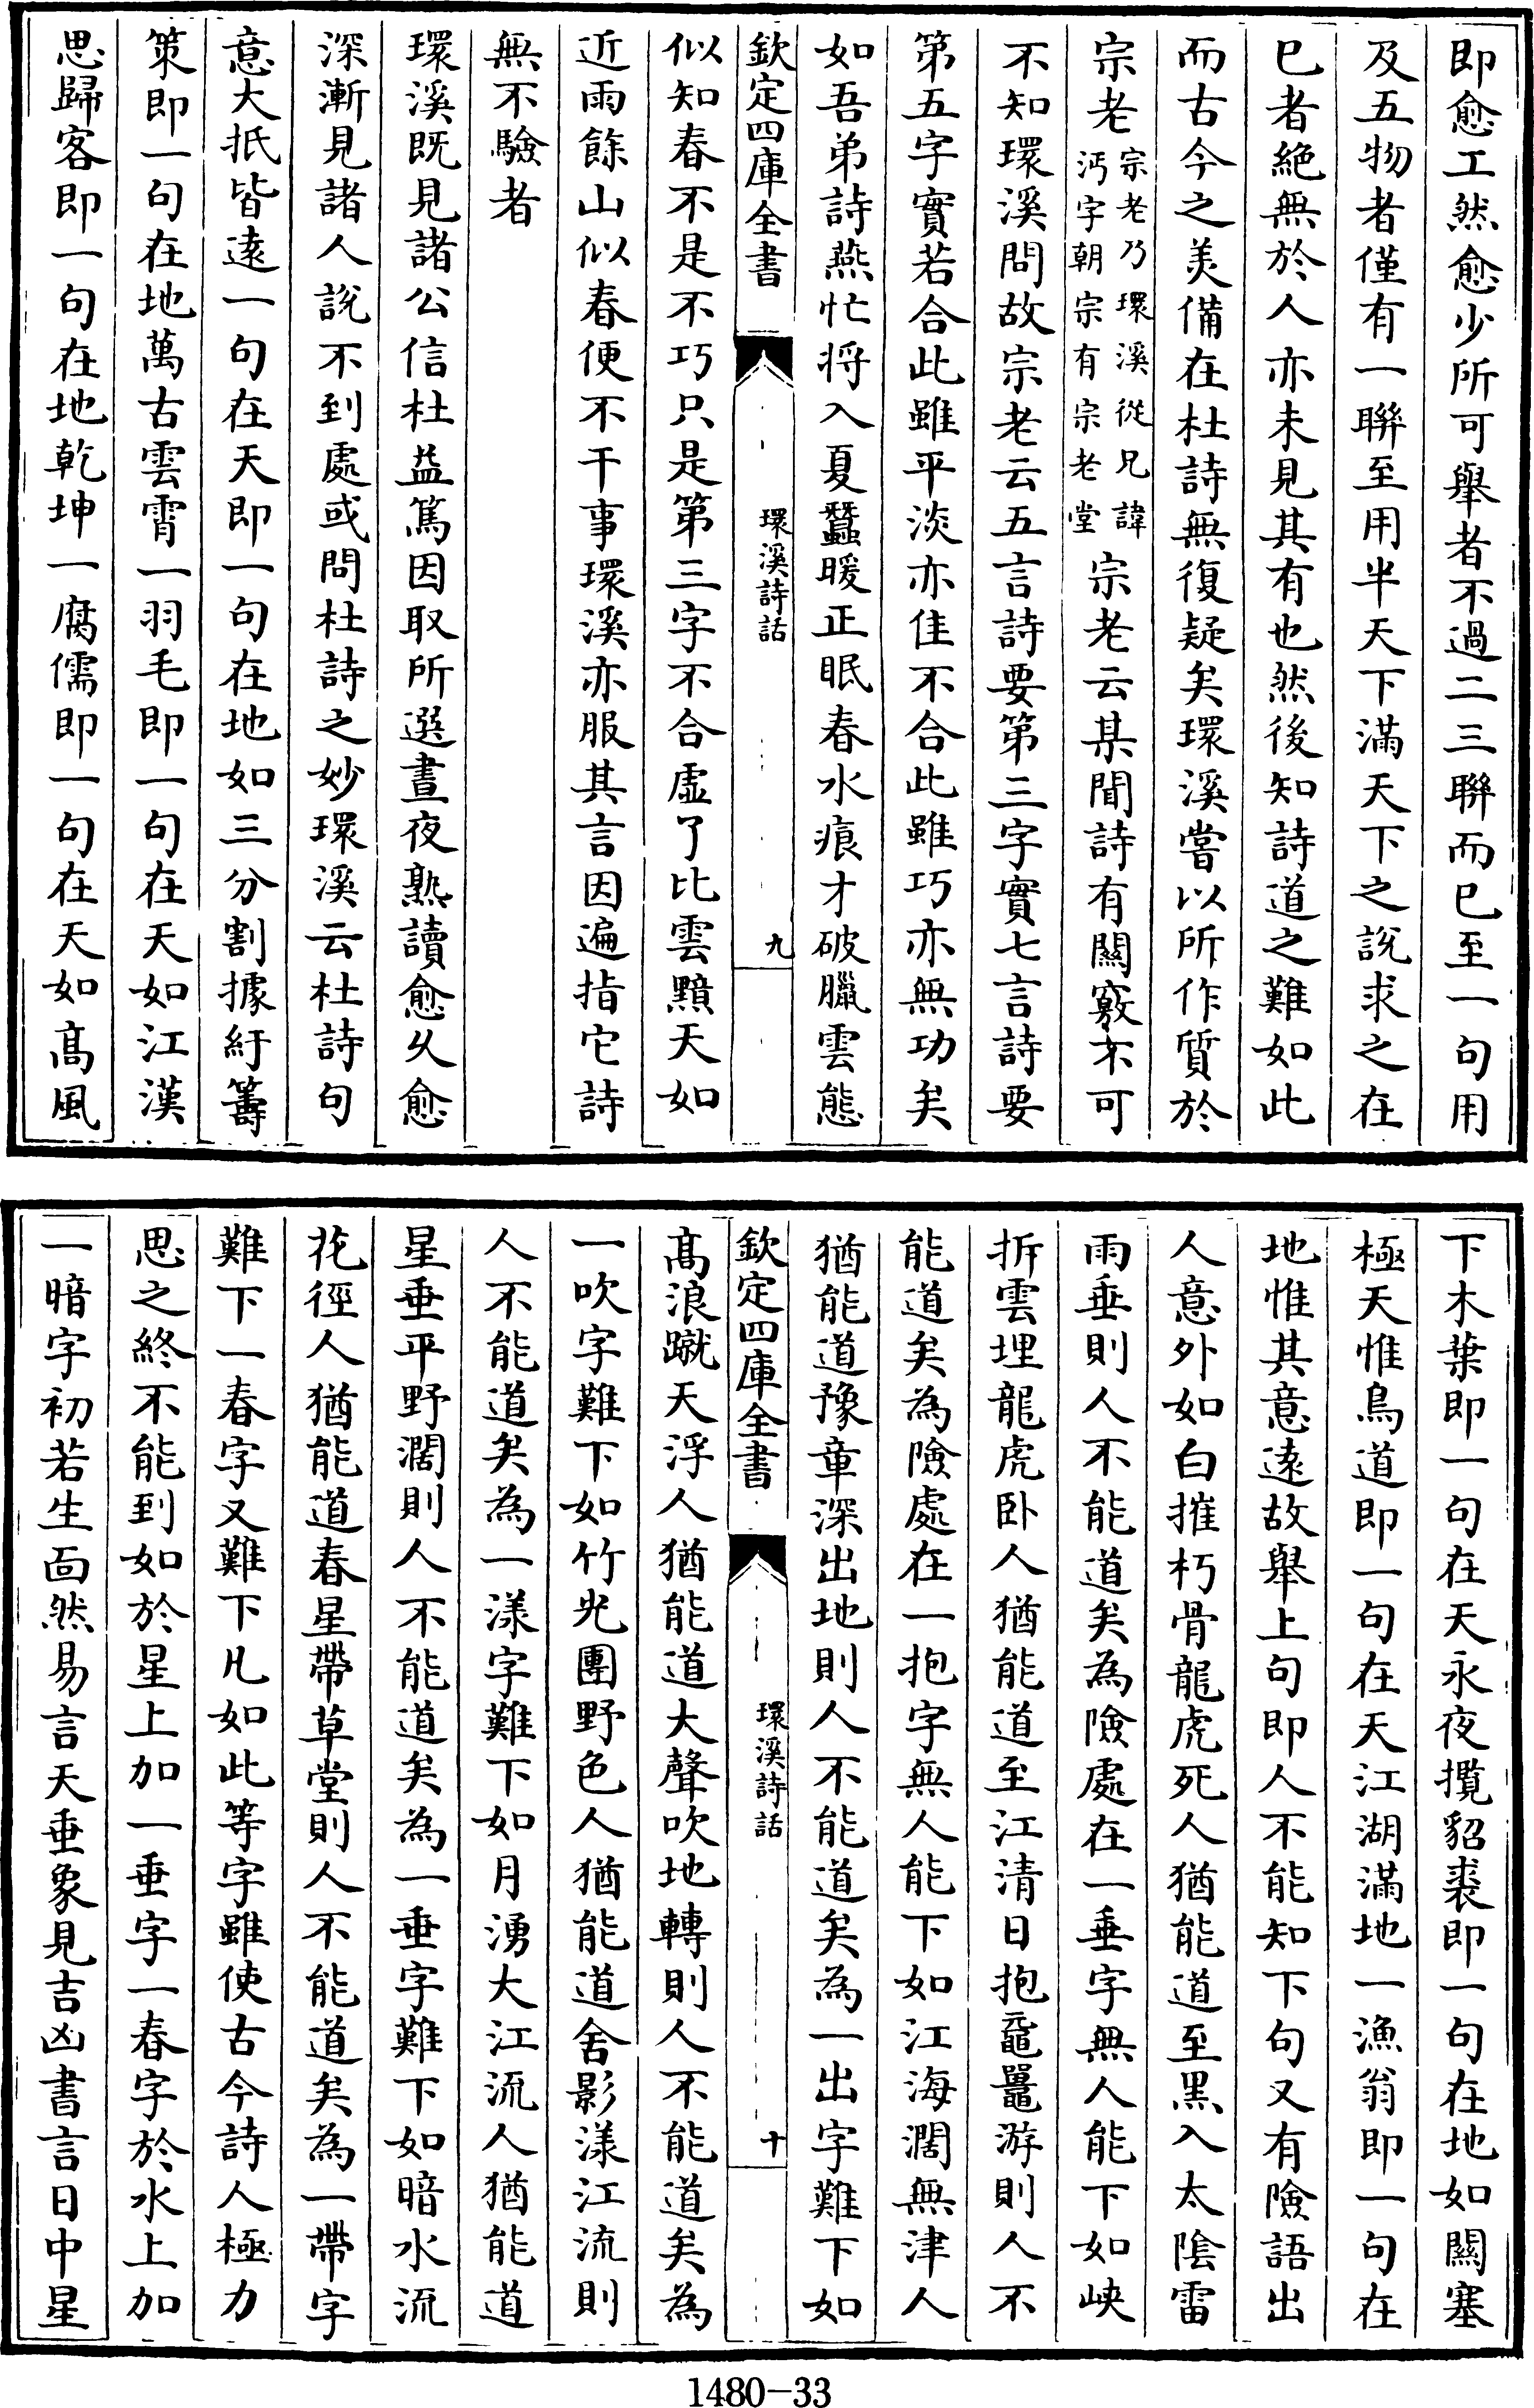 即愈工然愈少所可舉者不過二三聯而已至一句用
及五物者僅有一聯至用半天下滿天下之說求之在
已者絶無於人亦未見其有也然後知詩道之難如此
而古今之美備在杜詩無復疑矣環溪嘗以所作質於
宗老宗老乃環溪從兄諱沔字朝宗有宗老堂宗老云某聞詩有關竅不可
不知環溪問故宗老云五言詩要第三字實七言詩要
第五字實若合此雖平淡亦佳不合此雖巧亦無功矣
如吾弟詩燕忙將入夏蠶暖正眠春水痕才破臘雲態
欽定四庫全書 環溪詩話 九
似知春不是不巧只是第三字不合虛了比雲黯天如
近雨餘山似春便不干事環溪亦服其言因遍指它詩
無不驗者
環溪既見諸公信杜益篤因取所選晝夜熟讀愈乆愈
深漸見諸人說不到處或問杜詩之妙環溪云杜詩句
意大抵皆逺一句在天即一句在地如三分割據紆籌
策即一句在地萬古雲霄一羽毛即一句在天如江漢
思歸客即一句在地乾坤一腐儒即一句在天如高風
下木葉即一句在天永夜攬貂裘即一句在地如關塞
極天惟鳥道即一句在天江湖滿地一漁翁即一句在
地惟其意逺故舉上句即人不能知下句又有險語出
人意外如白摧朽骨龍虎死人猶能道至黑入太陰雷
雨垂則人不能道矣為險處在一垂字無人能下如峽
拆雲埋龍虎卧人猶能道至江清日抱黿鼉游則人不
能道矣為險處在一抱字無人能下如江海濶無津人
猶能道豫章深出地則人不能道矣為一出字難下如
欽定四庫全書 環溪詩話 十
高浪蹴天浮人猶能道大聲吹地轉則人不能道矣為
一吹字難下如竹光團野色人猶能道舍影漾江流則
人不能道矣為一漾字難下如月湧大江流人猶能道
星垂平野濶則人不能道矣為一垂字難下如暗水流
花徑人猶能道春星帶草堂則人不能道矣為一帶字
難下一春字又難下凡如此等字雖使古今詩人極力
思之終不能到如於星上加一垂字一春字於水上加
一暗字初若生面然易言天垂象見吉凶書言日中星
1480-33